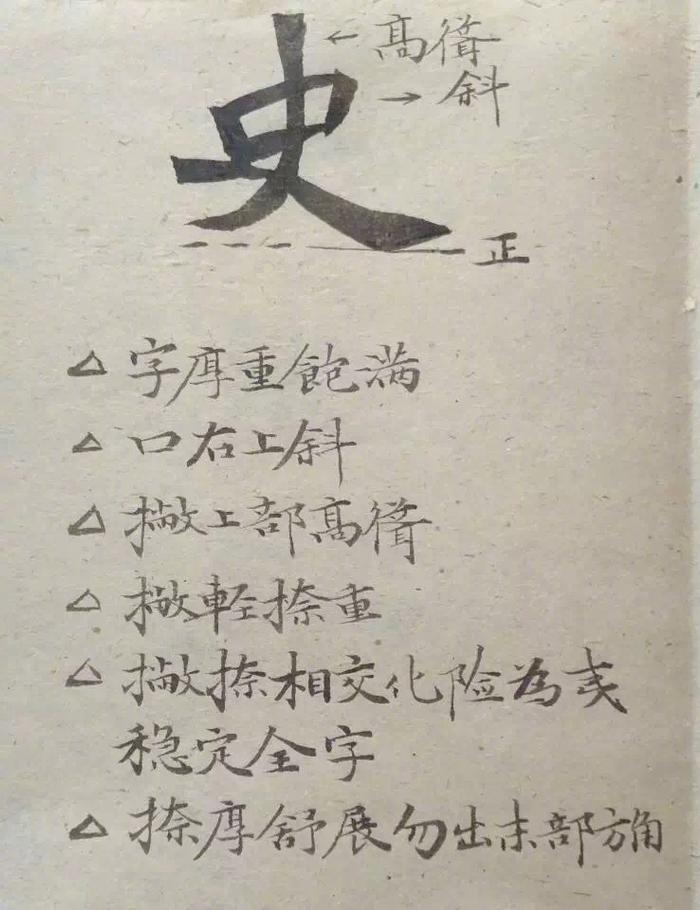 ← 高聳
→ 斜
史
正
△ 字厚重飽满
△ 口右上斜
△ 撇上部高聳
△ 撇輕捺重
△ 撇捺相交化险為夷
稳定全字
△ 捺厚舒展勿出末部方角